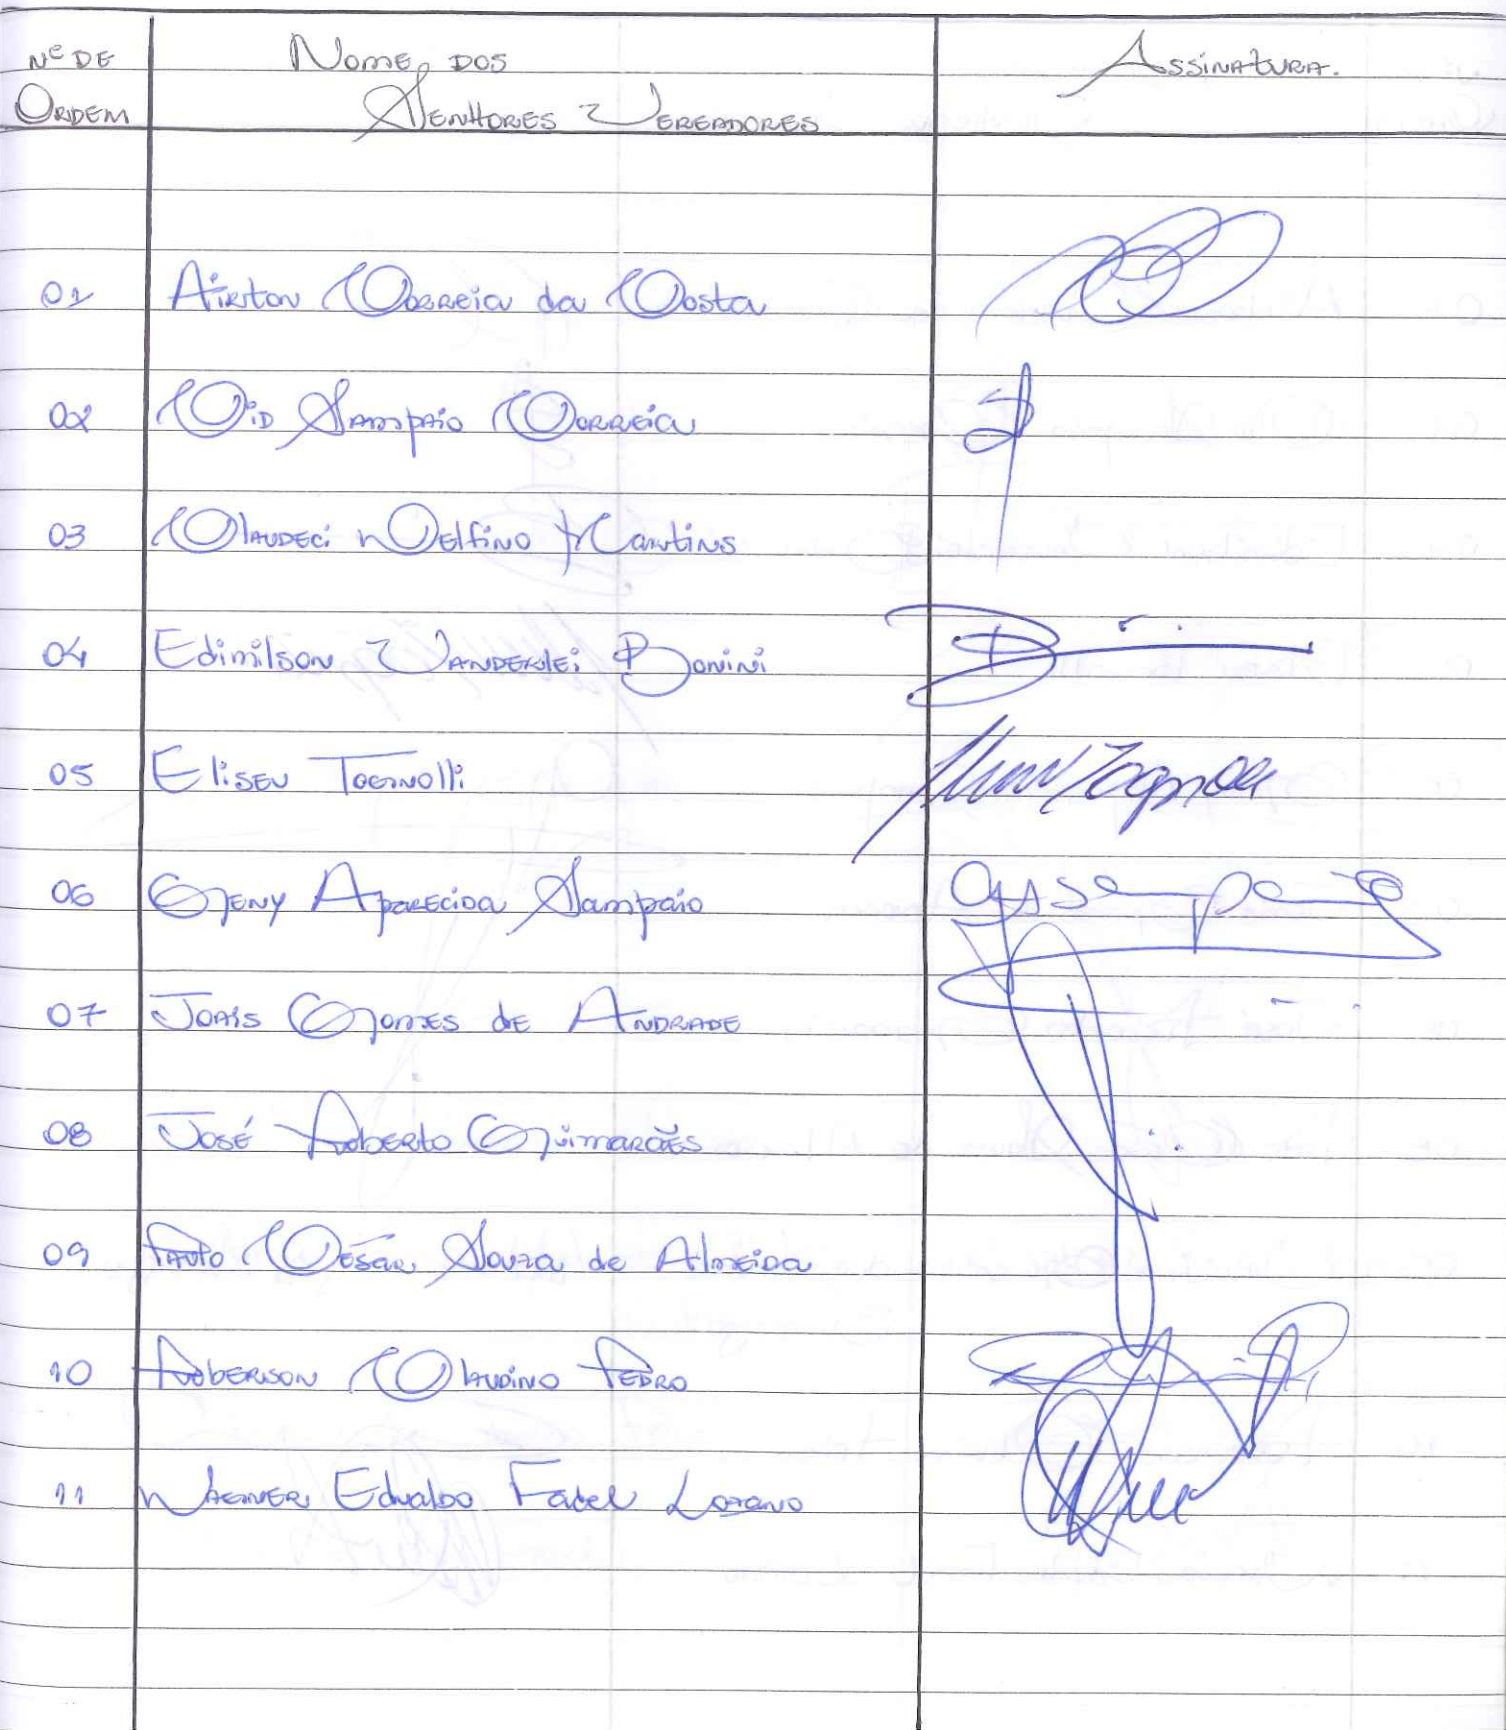 Nº DE Nome dos Assinatura.
Ordem Senhores Vereadores
01 Airton Correia da Costa
02 Cid Sampaio Correia
03 Claudeci Delfino Martins
04 Edimilson Vanderlei Bonini
05 Eliseu Tognolli
06 Geny Aparecida Sampaio
07 Joais Gomes de Andrade
08 José Roberto Guimarães
09 Paulo César Souza de Almeida
10 Roberson Claudino Pedro
11 Wagner Edvaldo Fadel Lozano